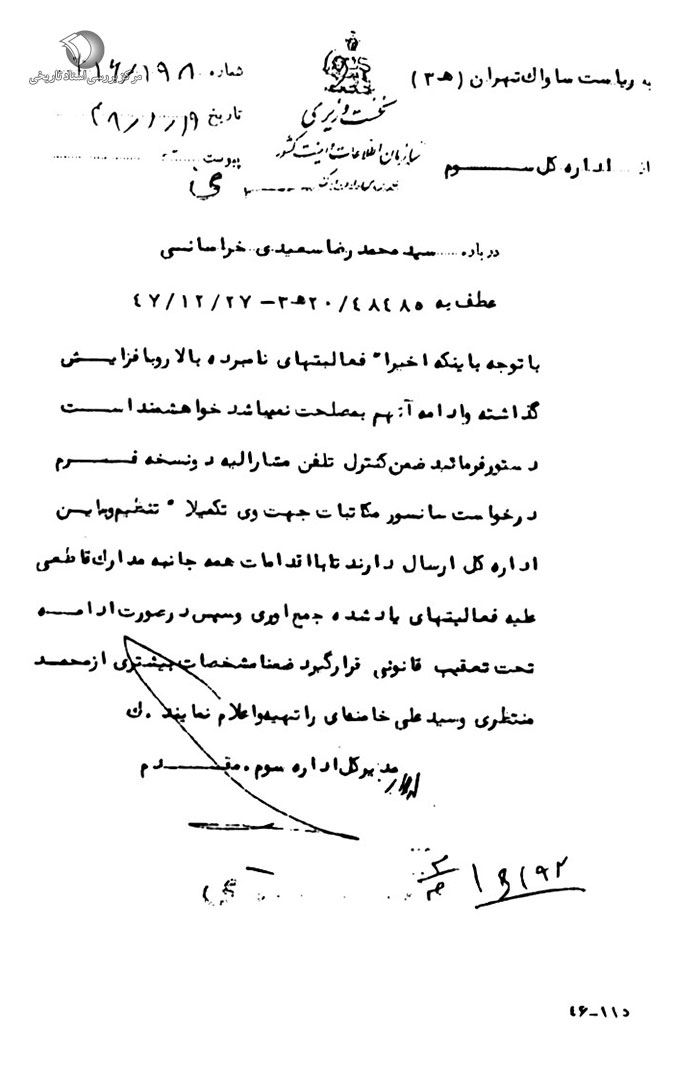 مرکز بررسی اسناد تاریخی
به ریاست ساواك تهران (هـ ۳)
نخست وزیری
سازمان اطلاعات و امنیت کشور
شماره
تاریخ ۴۸/۱/۱۹
پیوست
از اداره کل سوم
درباره سید محمد رضا سعیدی خراسانی
عطف به ۲۰/۴۸۴۸۵هـ۳ - ۴۷/۱۲/۲۷
با توجه باینکه اخیرا" فعالیتهای نامبرده بالا رو بافزایش
گذاشته وادامه آن هم بمصلحت نمیباشد خواهشمند است
دستور فرمائید ضمن کنترل تلفن مشارالیه دو نسخه فرم
درخواست سانسور مکاتبات جهت وی تکمیلا" تنظیم و باین
اداره کل ارسال دارند تا با اقدامات همه جانبه مدارك قاطعی
علیه فعالیتهای یاد شده جمع اوری وسپس در صورت ادامه
تحت تعقیب قانونی قرار گیرد ضمنا مشخصات بیشتری از محمد
منتظری وسید علی خامنه‌ای را تهیه و اعلام نمایند .ك
مدیر کل اداره سوم . مقدم
۱۱د-۴۶